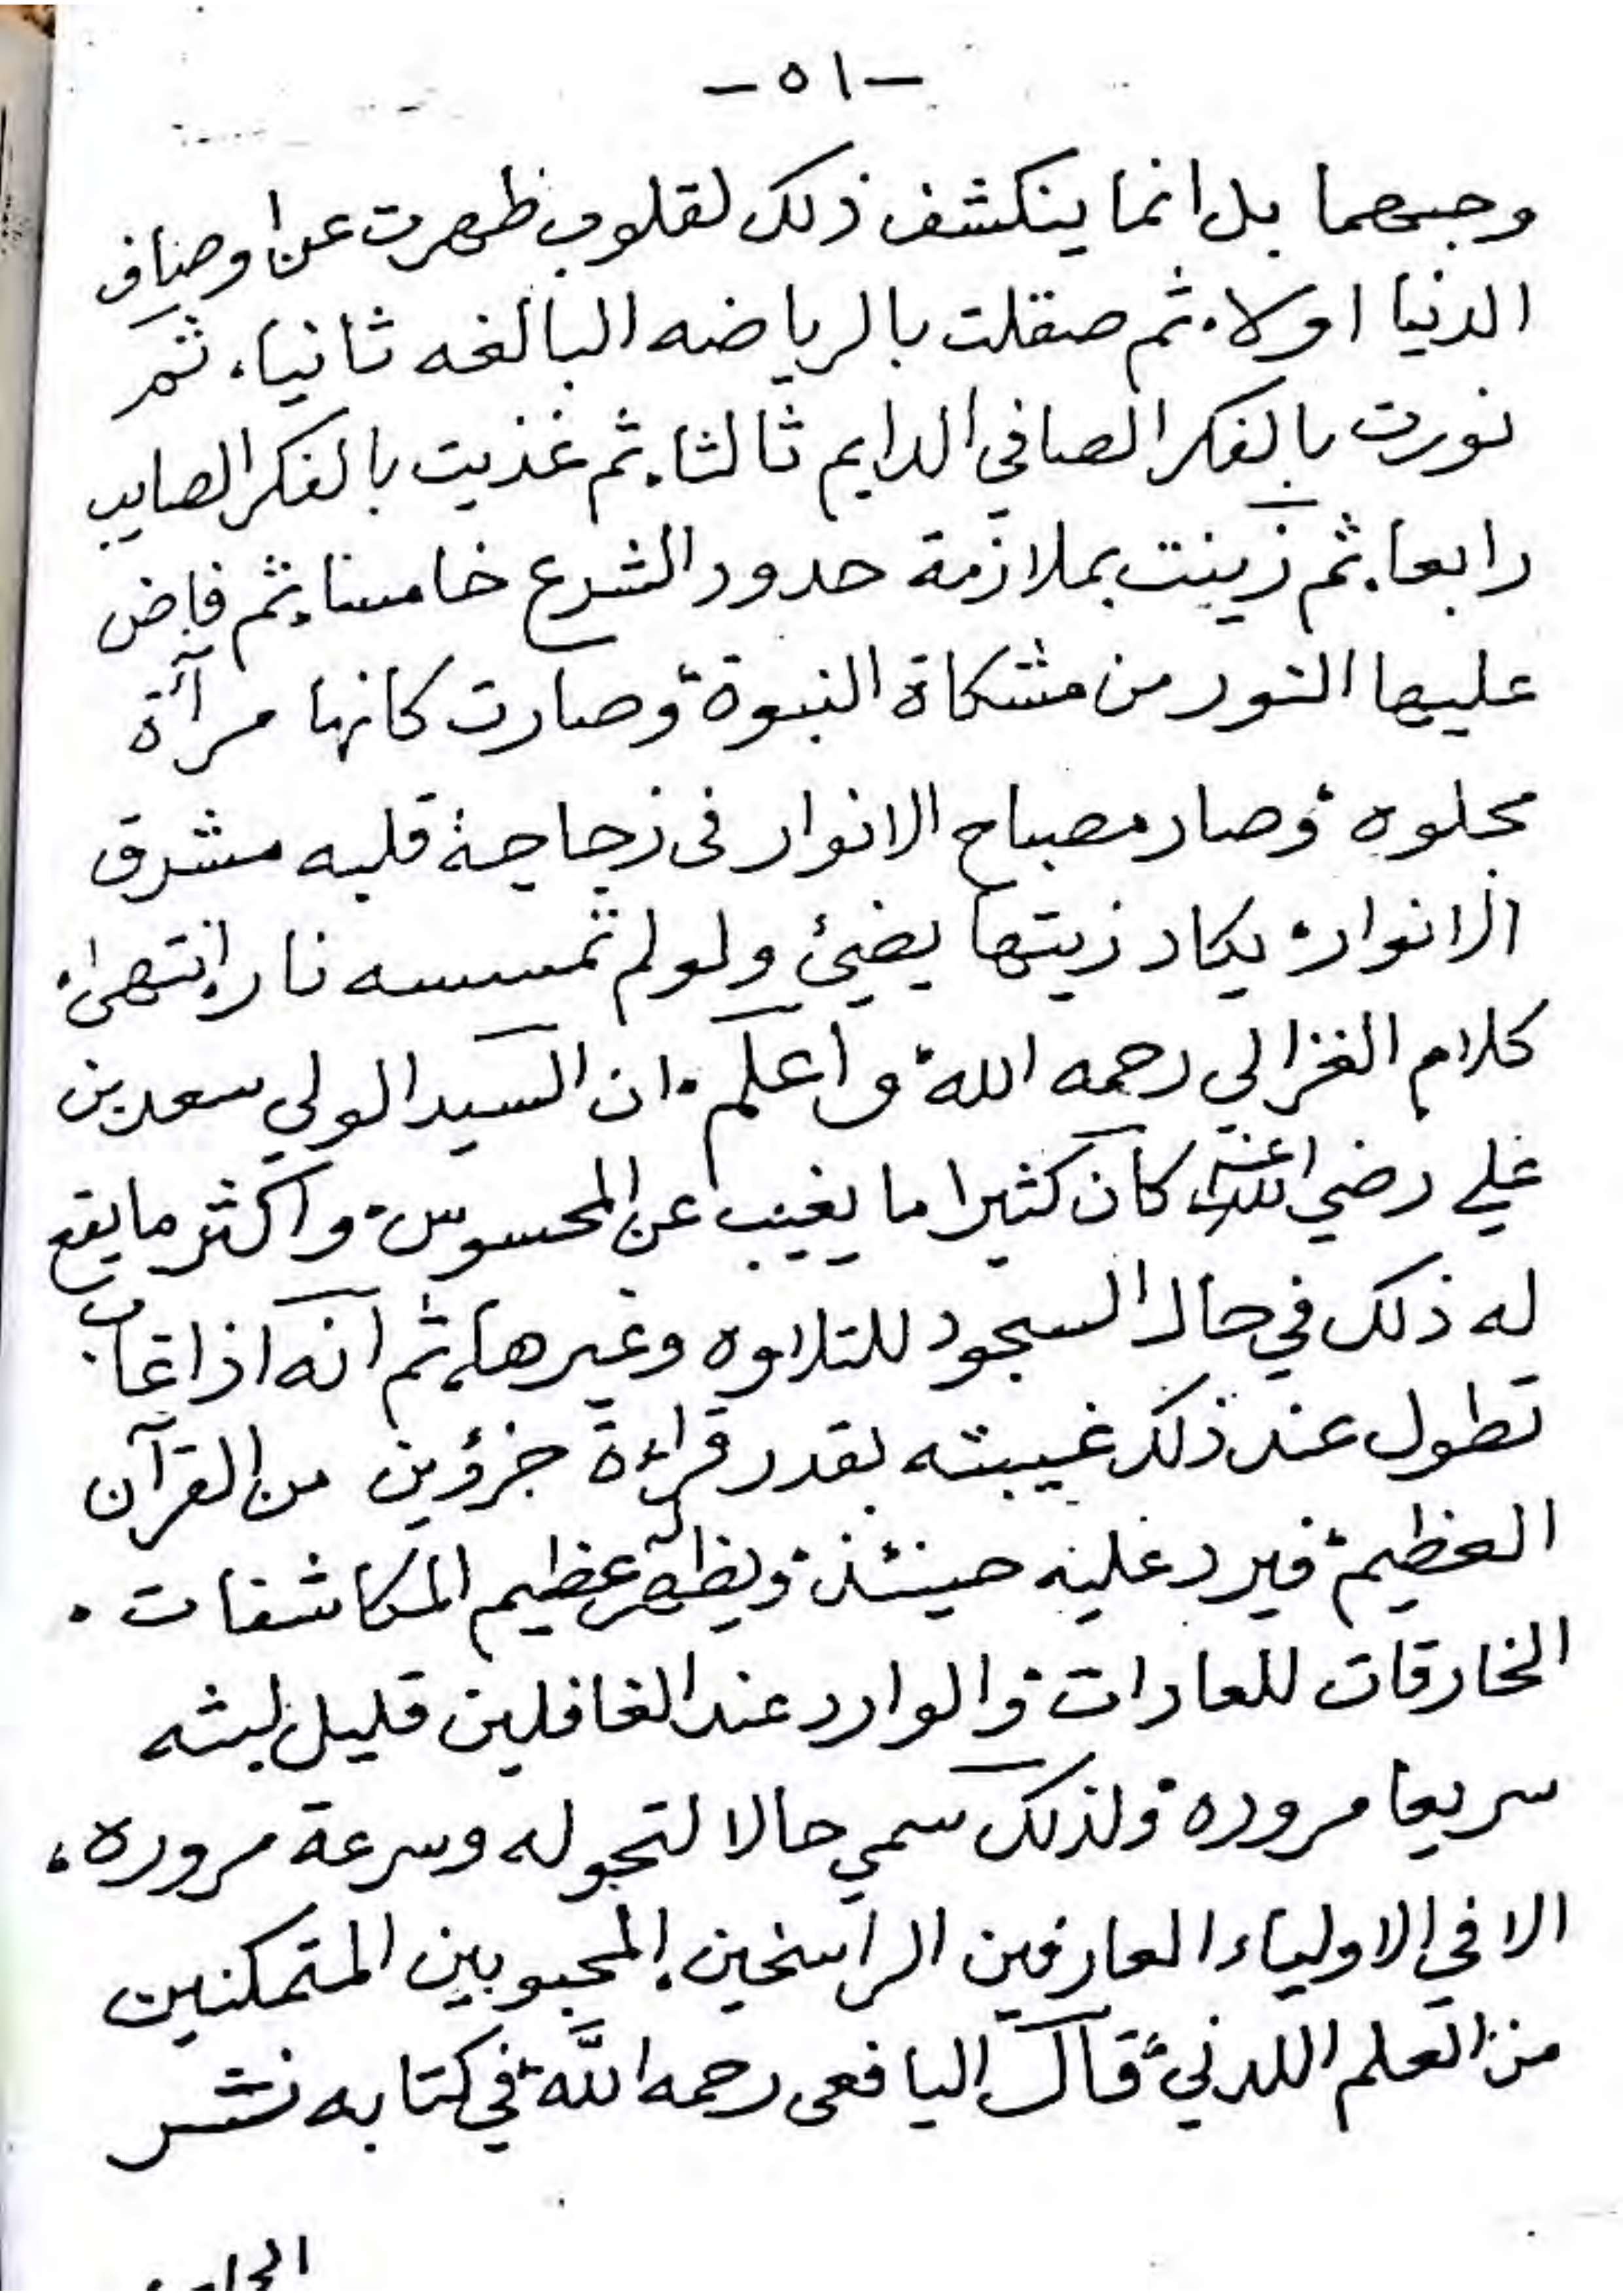 -٥١-
وجبهما بل انما ينكشف ذلك لقلوب ظهرت عن اوصاف
الدنيا اولا، ثم صقلت بالرياضه البالغه ثانيا، ثم
نورت بالفكر الصافي الدايم ثالثا، ثم غذيت بالفكر الصايب
رابعا، ثم زينت بملازمة حدود الشرع خامسا، ثم فاض
عليها النور من مشكاة النبوة، وصارت كانها مرآة
مجلوه، وصار مصباح الانوار في زجاجة قلبه مشرق
الانوار، يكاد زيتها يضيئ ولو لم تمسسه نار، انتهى،
كلام الغزالي رحمه الله، واعلم، ان السيد الولي سعد بن
علي رضي الله عنه كان كثيرا ما يغيب عن المحسوس، واكثر ما يقع
له ذلك في حال السجود للتلاوه وغيرها، ثم انه اذا غاب
تطول عند ذلك غيبته بقدر قراءة جزؤين من القرآن
العظيم، فيرد عليه حينئذ، ويظهر له عظيم المكاشفات،
الخارقات للعادات، والوارد عند الغافلين قليل لبثه
سريعا مروره، ولذلك سمي حالا لتحوله وسرعة مروره،
الا في الاولياء العارفين الراسخين، المحبوبين المتمكنين
من العلم اللدني، قال اليافعى رحمه الله، في كتابه نشر